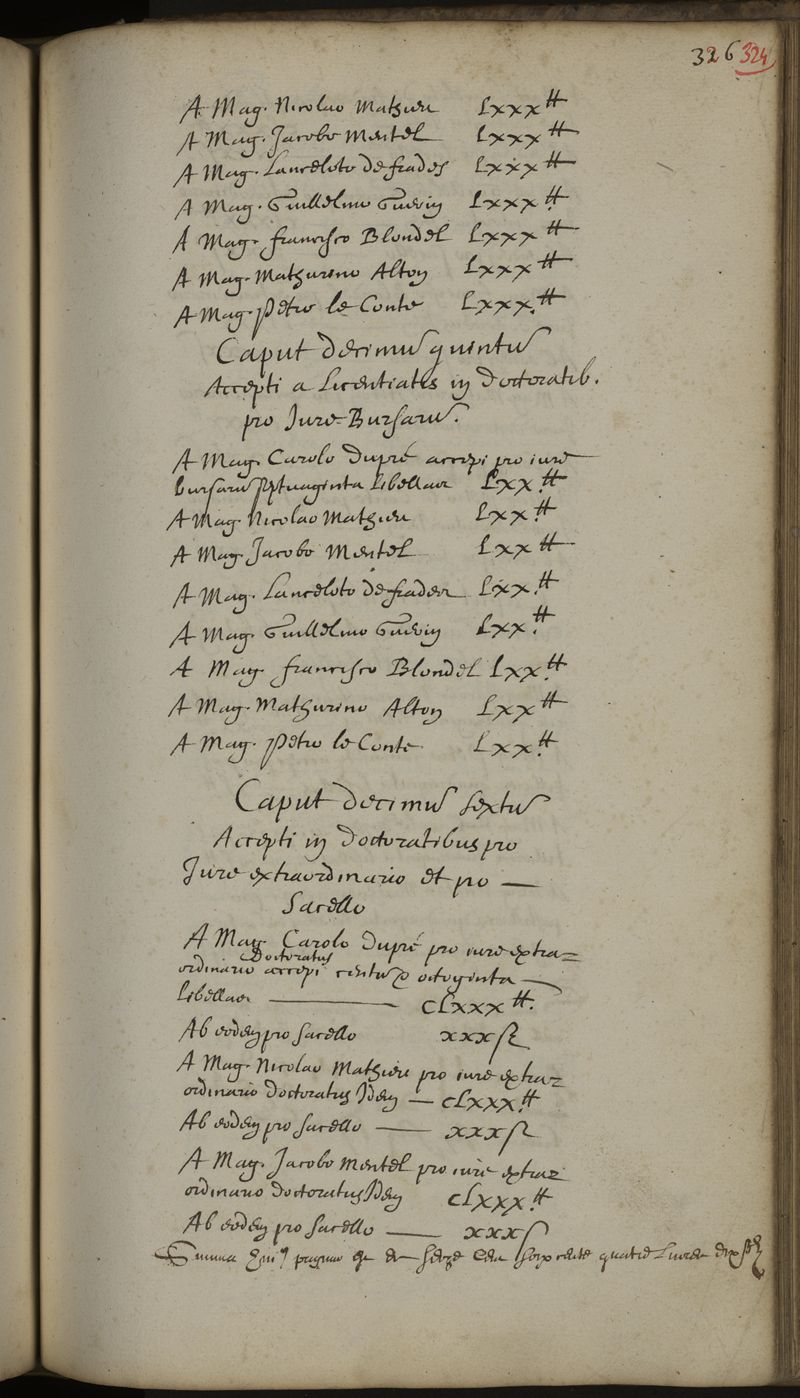 326 324
A Mag. Nicolao Mathieu Lxxx ₶
A Mag. Jacobo Mentel Lxxx ₶
A Mag. Lanceloto de frades Lxxx ₶
A Mag. Guillelmo Guerin Lxxx ₶
A Mag. francisco Blondel Lxxx ₶
A Mag. Mathurino Alton Lxxx ₶
A Mag. Petro le Conte Lxxx ₶
Caput decimus quintus
Accepti a Licentiatis in doctoratib.
pro Jure Bursarum.
A Mag. Carolo dupré accepi pro iure
bursarum septuaginta libellas Lxx ₶
A Mag. Nicolao Mathieu Lxx ₶
A Mag. Jacobo Mentel Lxx ₶
A Mag. Lanceloto de frades Lxx ₶
A Mag. Guillelmo Guerin Lxx ₶
A Mag. francisco Blondel Lxx ₶
A Mag. Mathurino Alton Lxx ₶
A Mag. Petro le Conte Lxx ₶
Caput decimus sextus
Accepti in doctoratibus pro
Jure extraordinario et pro —
Sacello
A Mag. Carolo dupré pro iure extra=
doctoratus
ordinario accepi centum octoginta —
libellas — cLxxx ₶
Ab eodem pro sacello xxx ſ
A Mag. Nicolao Mathieu pro iure extra=
ordinario doctoratus Idem — cLxxx ₶
Ab eodem pro sacello — xxx ſ
A Mag. Jacobo Mentel pro iure extra=
ordinario doctoratus Idem cLxxx ₶
Ab eodem pro sacello — xxx ſ
Summa quatre Livres dix